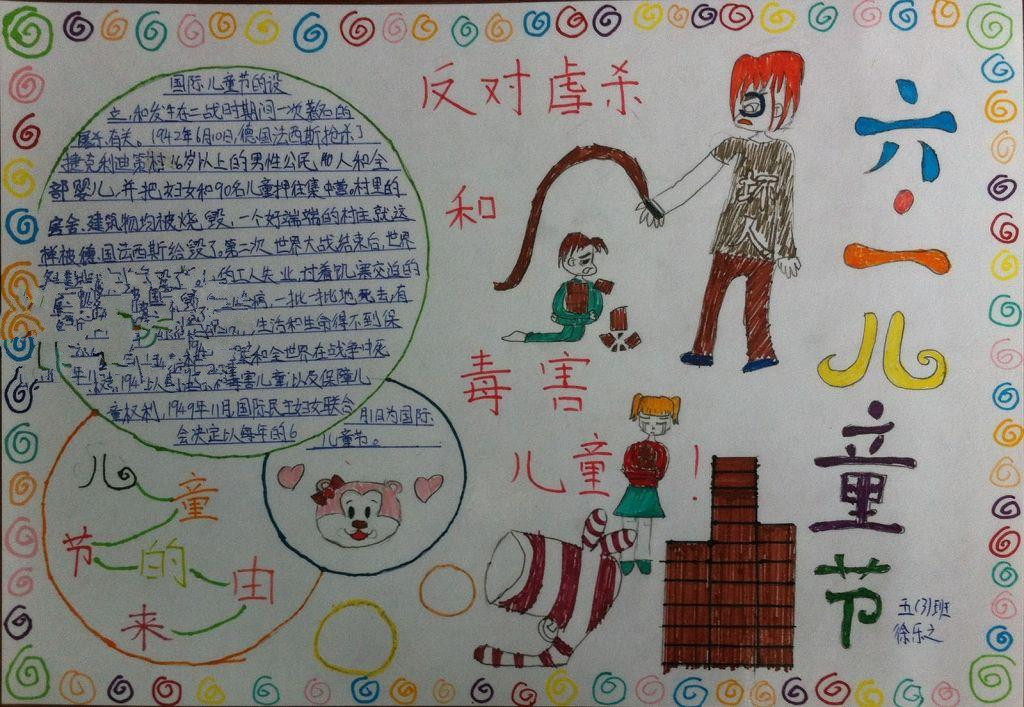 国际儿童节的设
立,和发生在二战时期间一次著名的
屠杀有关。1942年6月10日,德国法西斯枪杀了
捷克利迪策村16岁以上的男性公民 人和全
部婴儿,并把妇女和90名儿童押往集中营。村里的
房舍、建筑物均被烧毁,一个好端端的村庄就这
样被德国法西斯给毁了。第二次世界大战结束后,世界
的工人失业,过着饥寒交迫的
病,一批一批地死去;有
生活和生命得不到保
和全世界在战争中死
毒害儿童,以及保障儿
童权利,1949年11月,国际民主妇女联合
会决定以每年的6
月1日为国际
儿童节。
儿童
节的由
来
反对虐杀
和
毒害
儿童!
坏
人
六·一儿童节
五(3)班
徐乐之